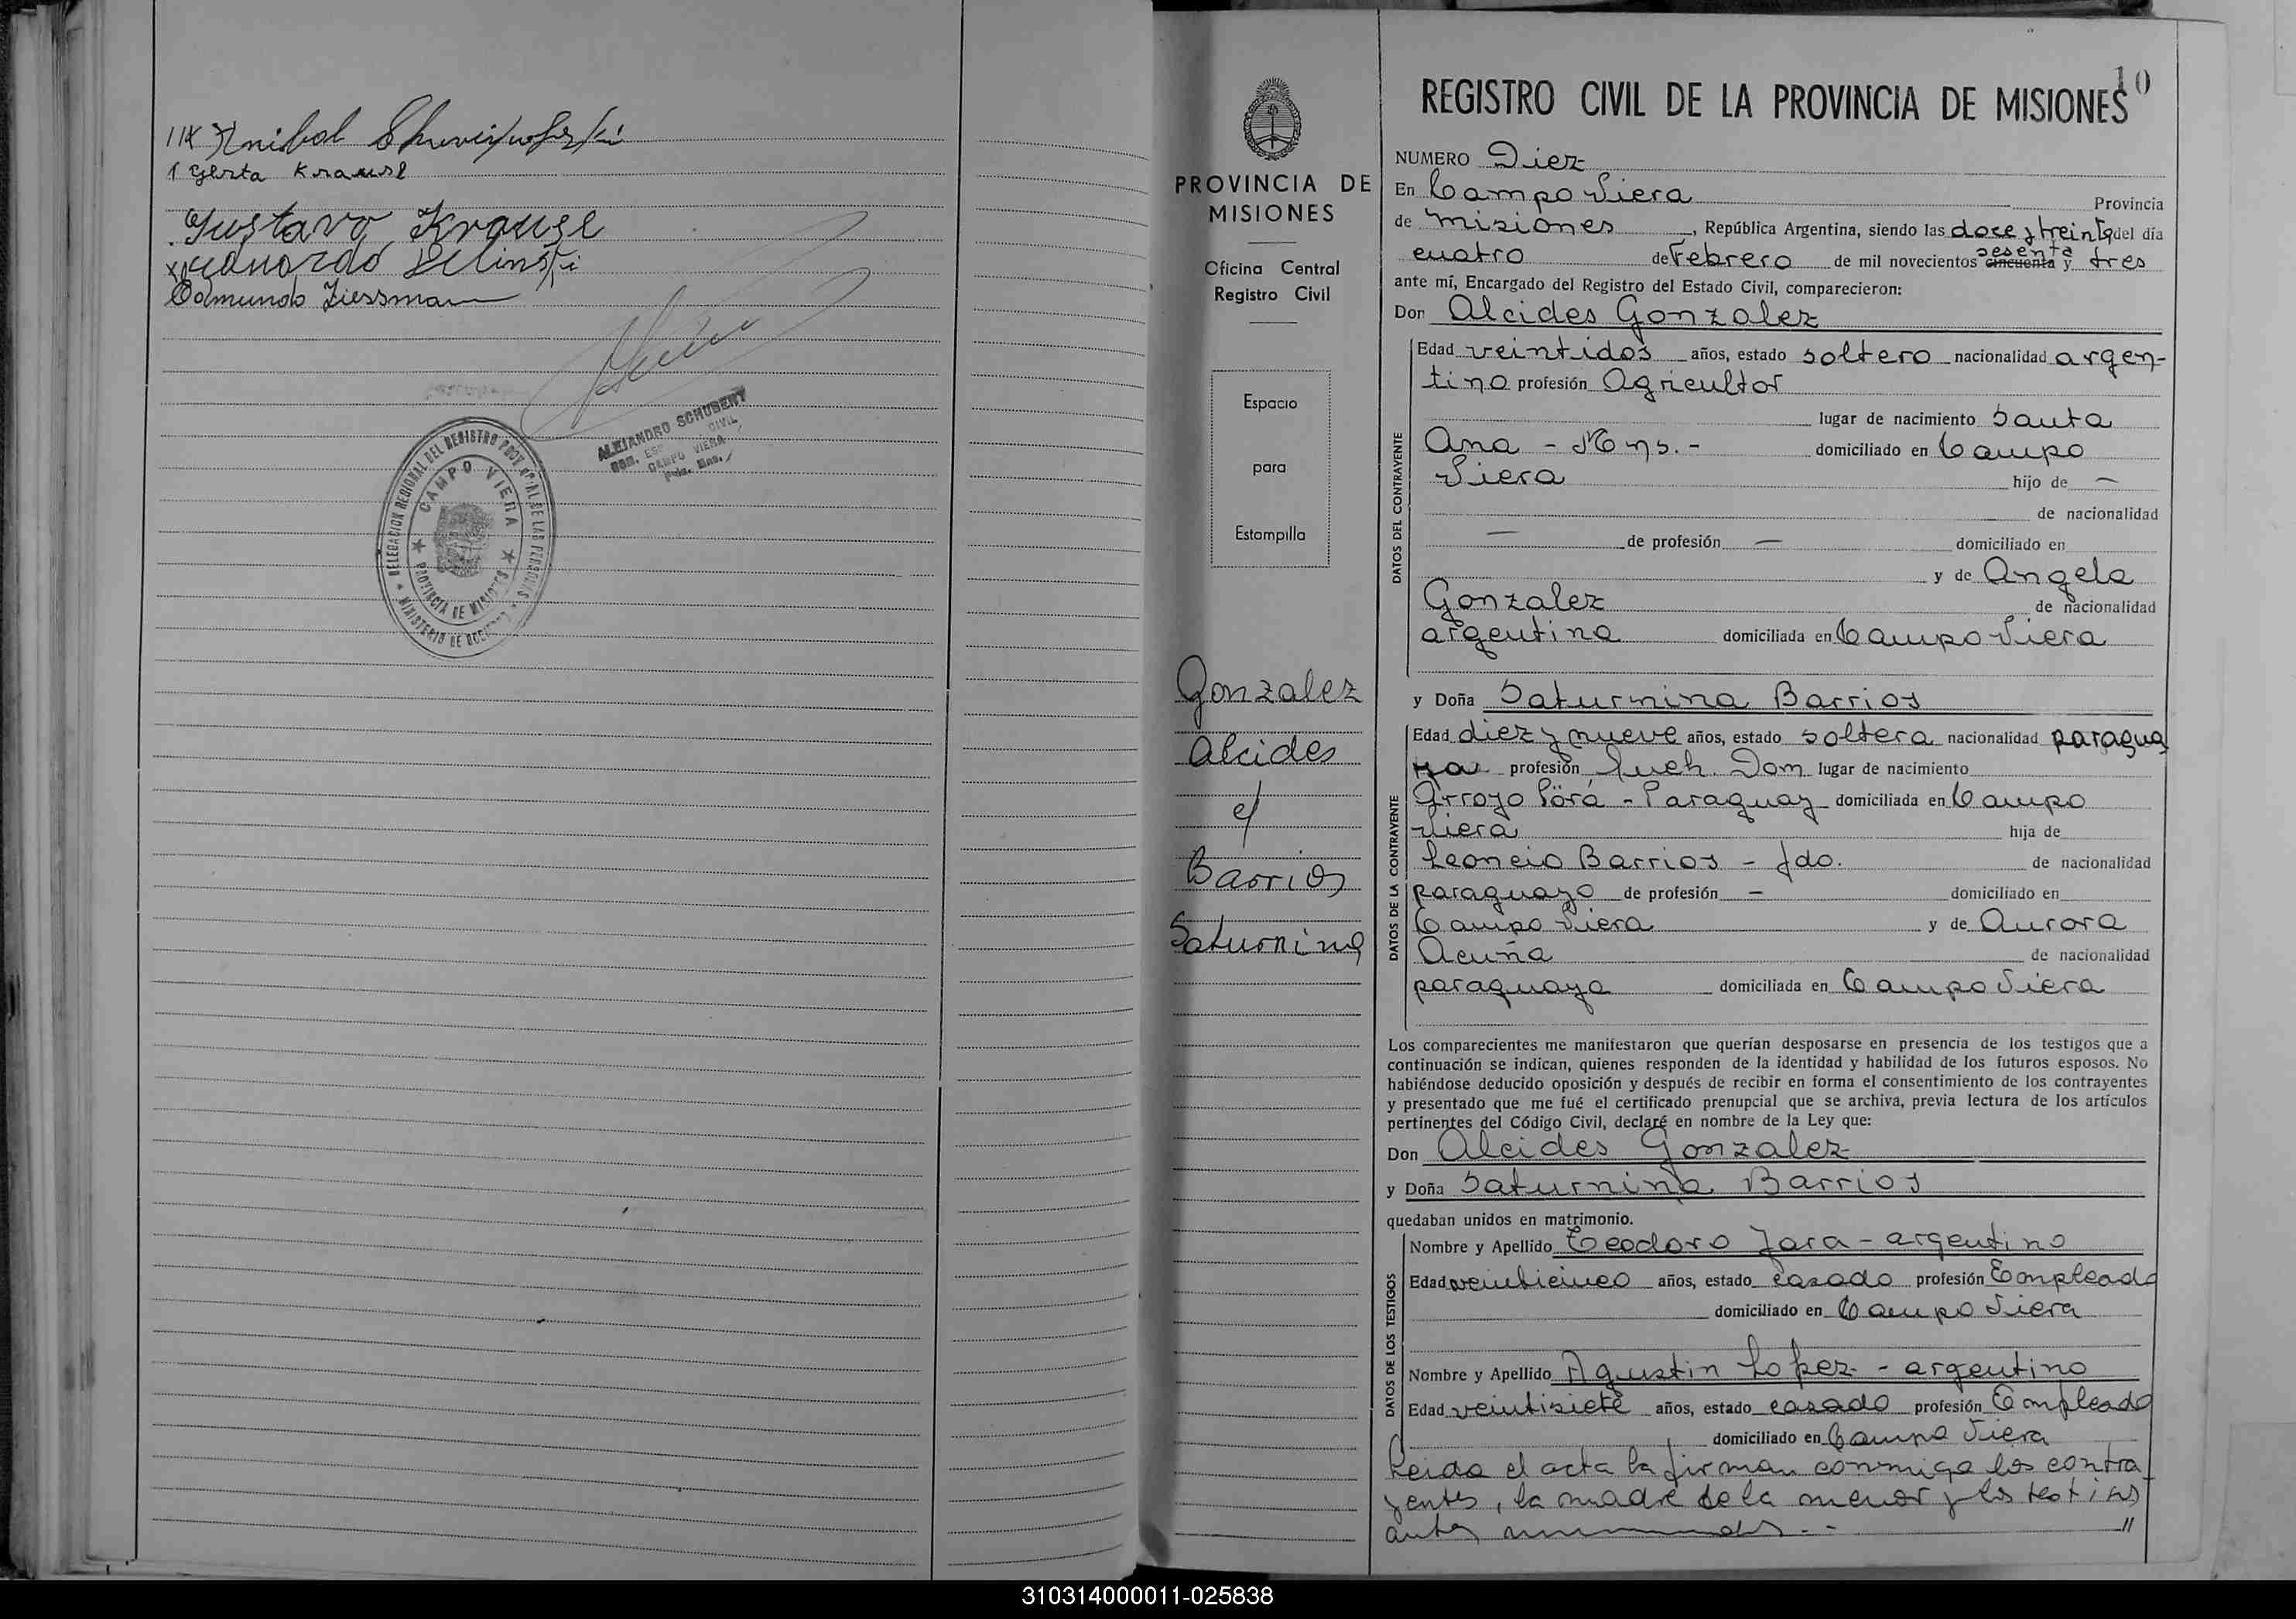 Anibal
Gerta Krause
Gustavo Krause
Eduardo Zelinski
Edmundo Ziessman
ALEJANDRO SCHUBERT
CIVIL
CAMPO VIERA
Pcia. Mns.
DELEGACION REGIONAL DEL REGISTRO PROV. DE LAS PERSONAS
CAMPO VIERA
PROVINCIA DE MISIONES
MINISTERIO DE
PROVINCIA DE
MISIONES
Oficina Central
Registro Civil
Espacio
para
Estampilla
Gonzalez
Alcides
c/
Barrios
Saturnina
10
REGISTRO CIVIL DE LA PROVINCIA DE MISIONES
NUMERO Diez
En Campo Viera Provincia
de Misiones, República Argentina, siendo las doce y treinta del día
cuatro de Febrero de mil novecientos cincuenta sesenta y tres
ante mí, Encargado del Registro del Estado Civil, comparecieron:
Don Alcides Gonzalez
DATOS DEL CONTRAYENTE
Edad veintidos años, estado soltero nacionalidad argen-
tina profesión Agricultor
lugar de nacimiento Santa
Ana - Mns. - domiciliado en Campo
Viera hijo de —
de nacionalidad
— de profesión — domiciliado en
y de Angela
Gonzalez de nacionalidad
argentina domiciliada en Campo Viera
y Doña Saturnina Barrios
DATOS DE LA CONTRAYENTE
Edad diez y nueve años, estado soltera nacionalidad paragua
ya profesión Queh. Dom. lugar de nacimiento
Arroyo Porá - Paraguay domiciliada en Campo
Viera hija de
Leoncio Barrios - fdo. de nacionalidad
paraguayo de profesión — domiciliado en
Campo Viera y de Aurora
Acuña de nacionalidad
paraguaya domiciliada en Campo Viera
Los comparecientes me manifestaron que querían desposarse en presencia de los testigos que a
continuación se indican, quienes responden de la identidad y habilidad de los futuros esposos. No
habiéndose deducido oposición y después de recibir en forma el consentimiento de los contrayentes
y presentado que me fué el certificado prenupcial que se archiva, previa lectura de los artículos
pertinentes del Código Civil, declaré en nombre de la Ley que:
Don Alcides Gonzalez
y Doña Saturnina Barrios
quedaban unidos en matrimonio.
DATOS DE LOS TESTIGOS
Nombre y Apellido Teodoro Jara - argentino
Edad veinticinco años, estado casado profesión Empleado
domiciliado en Campo Viera
Nombre y Apellido Agustin Lopez - argentino
Edad veintisiete años, estado casado profesión Empleado
domiciliado en Campo Viera
Leida el acta la firman conmigo los contra
yentes, la madre de la menor y los testigos
antes mencionados. - //
310314000011-025838